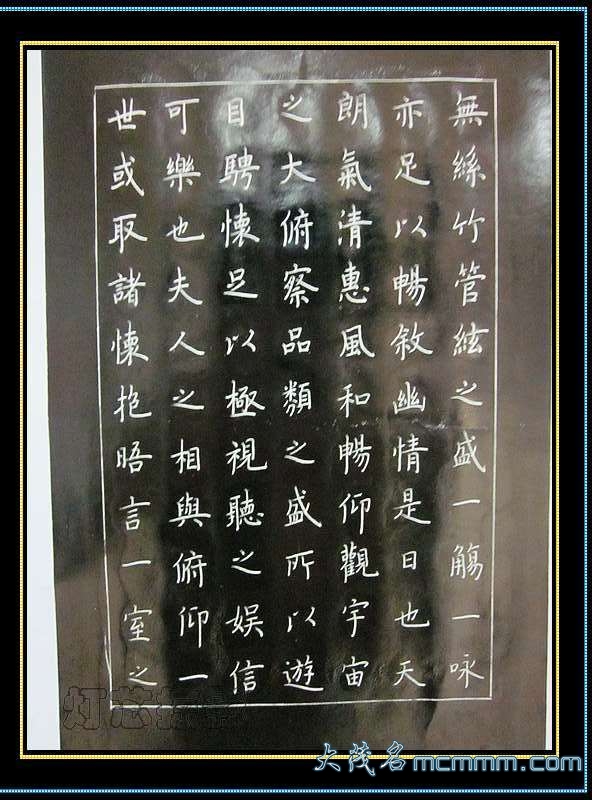 無絲竹管絃之盛一觴一咏
亦足以暢敘幽情是日也天
朗氣清惠風和暢仰觀宇宙
之大俯察品類之盛所以遊
目騁懷足以極視聽之娛信
可樂也夫人之相與俯仰一
世或取諸懷抱晤言一室之
灯芯
大茂名 mcmmm.com